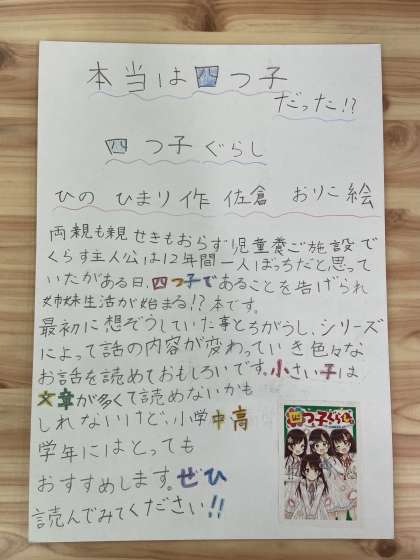 本当は四つ子
だった!?
四つ子ぐらし
ひの ひまり作 佐倉 おりこ絵
両親も親せきもおらず児童養ご施設で
くらす主人公は12年間一人ぼっちだと思って
いたがある日、四つ子であることを告げられ
姉妹生活が始まる!?本です。
最初に想ぞうしていた事とちがうし、シリーズ
によって話の内容が変わっていき色々な
お話を読めておもしろいです。小さい子は
文章が多くて読めないかも
しれないけど、小学中高
学年にはとっても
おすすめします。ぜひ
読んでみてください!!
四つ子ぐらし